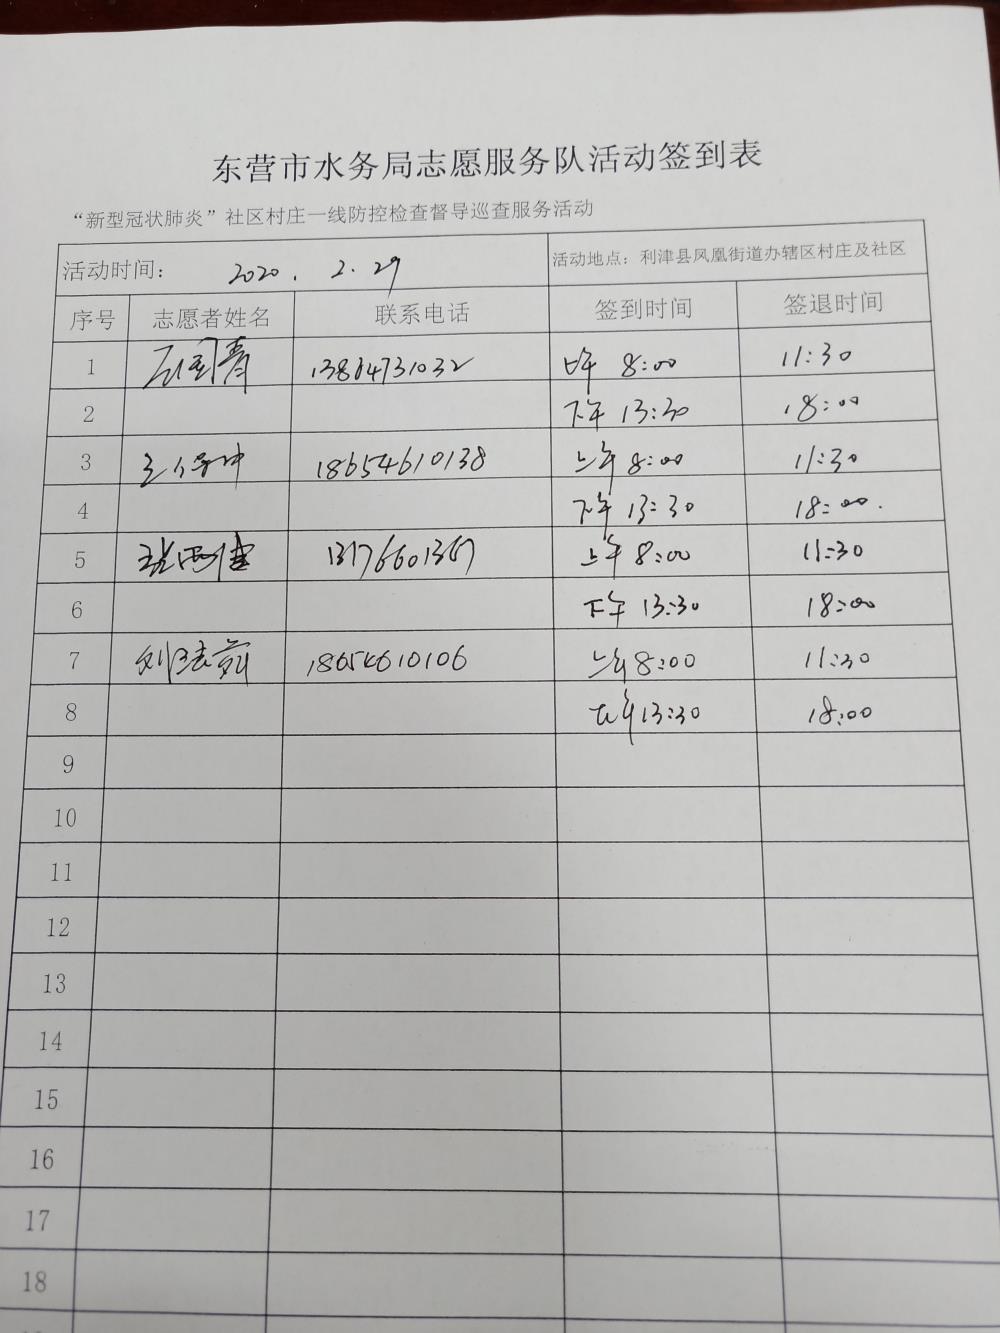 东营市水务局志愿服务队活动签到表
“新型冠状肺炎”社区村庄一线防控检查督导巡查服务活动
活动时间： 2020.2.29 活动地点：利津县凤凰街道办辖区村庄及社区
序号 志愿者姓名 联系电话 签到时间 签退时间
1 13864731032 上午 8:00 11:30
2 下午 13:30 18:00
3 18654610138 上午 8:00 11:30
4 下午 13:30 18:00.
5 13176601367 上午 8:00 11:30
6 下午 13:30 18:00
7 18654610106 上午 8:00 11:30
8 下午 13:30 18:00
9
10
11
12
13
14
15
16
17
18